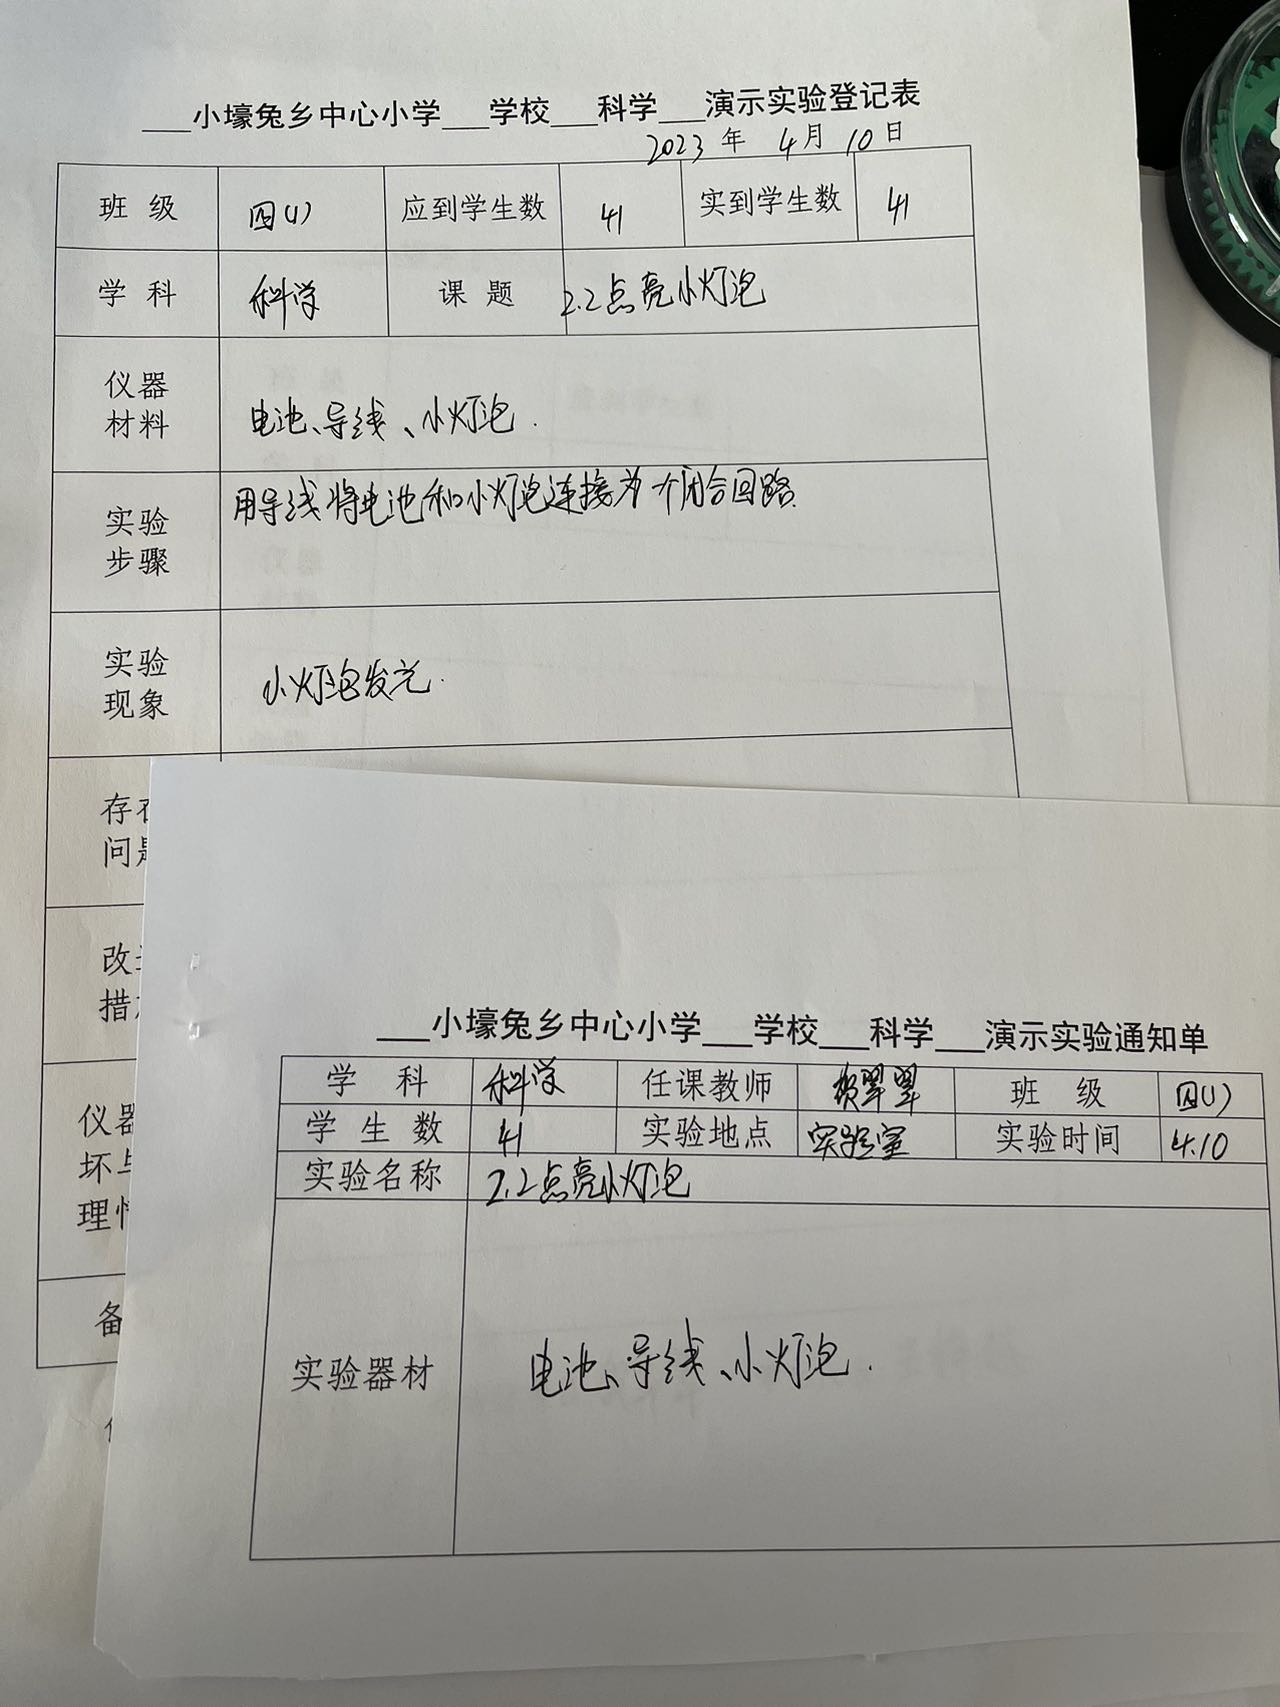 ___小壕兔乡中心小学___学校___科学___演示实验登记表
2023 年 4月 10日
班 级 四(1) 应到学生数 41 实到学生数 41
学 科 科学 课 题 2.2点亮小灯泡
仪器
材料
电池、导线、小灯泡.
实验
步骤
用导线将电池和小灯泡连接为一个闭合回路.
实验
现象
小灯泡发光.
存
问
改
措
仪器
坏与
理
备
___小壕兔乡中心小学___学校___科学___演示实验通知单
学 科 科学 任课教师 翠翠 班 级 四(1)
学 生 数 41 实验地点 实验室 实验时间 4.10
实验名称 2.2点亮小灯泡
实验器材 电池、导线、小灯泡.